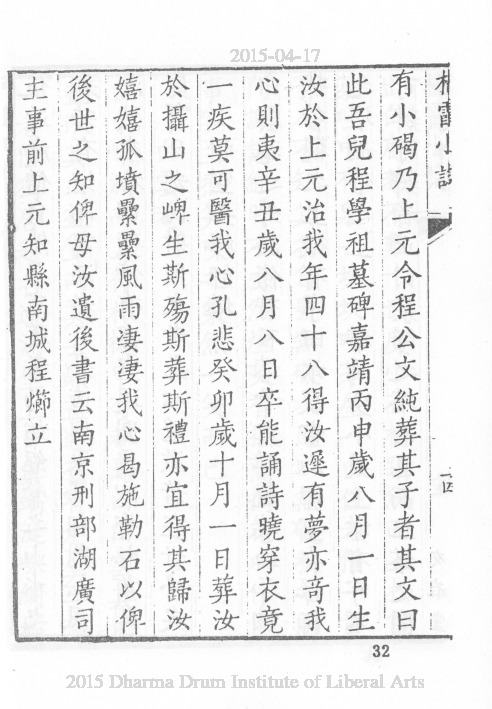 2015-04-17
有小碣乃上元令程公文純葬其子者其文曰
此吾兒程學祖墓碑嘉靖丙申歲八月一日生
汝於上元治我年四十八得汝遲有夢亦竒我
心則夷辛丑歲八月八日卒能誦詩曉穿衣竟
一疾莫可醫我心孔悲癸卯歲十月一日葬汝
於攝山之崥生斯殤斯葬斯禮亦宜得其歸汝
嬉嬉孤墳纍纍風雨凄凄我心曷施勒石以俾
後世之知俾母汝遺後書云南京刑部湖廣司
主事前上元知縣南城程㸅立
32
2015 Dharma Drum Institute of Liberal Arts